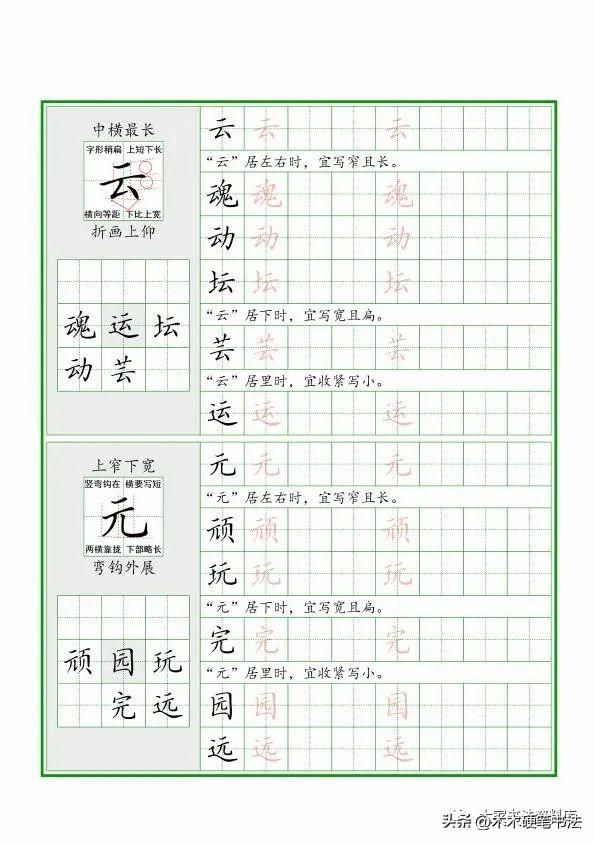 中横最长
字形稍扁 上短下长
云
横向等距 下比上宽
折画上仰
魂 运 坛
动 芸
云 云 云
“云”居左右时，宜写窄且长。
魂 魂 魂
动 动 动
坛 坛 坛
“云”居下时，宜写宽且扁。
芸 芸 芸
“云”居里时，宜收紧写小。
运 运 运
上窄下宽
竖弯钩在 横要写短
元
两横靠拢 下部略长
弯钩外展
顽 园 玩
完 远
元 元 元
“元”居左右时，宜写窄且长。
顽 顽 顽
玩 玩 玩
“元”居下时，宜写宽且扁。
完 完 完
“元”居里时，宜收紧写小。
园 园 园
远 远 远
头条 @木木硬笔书法